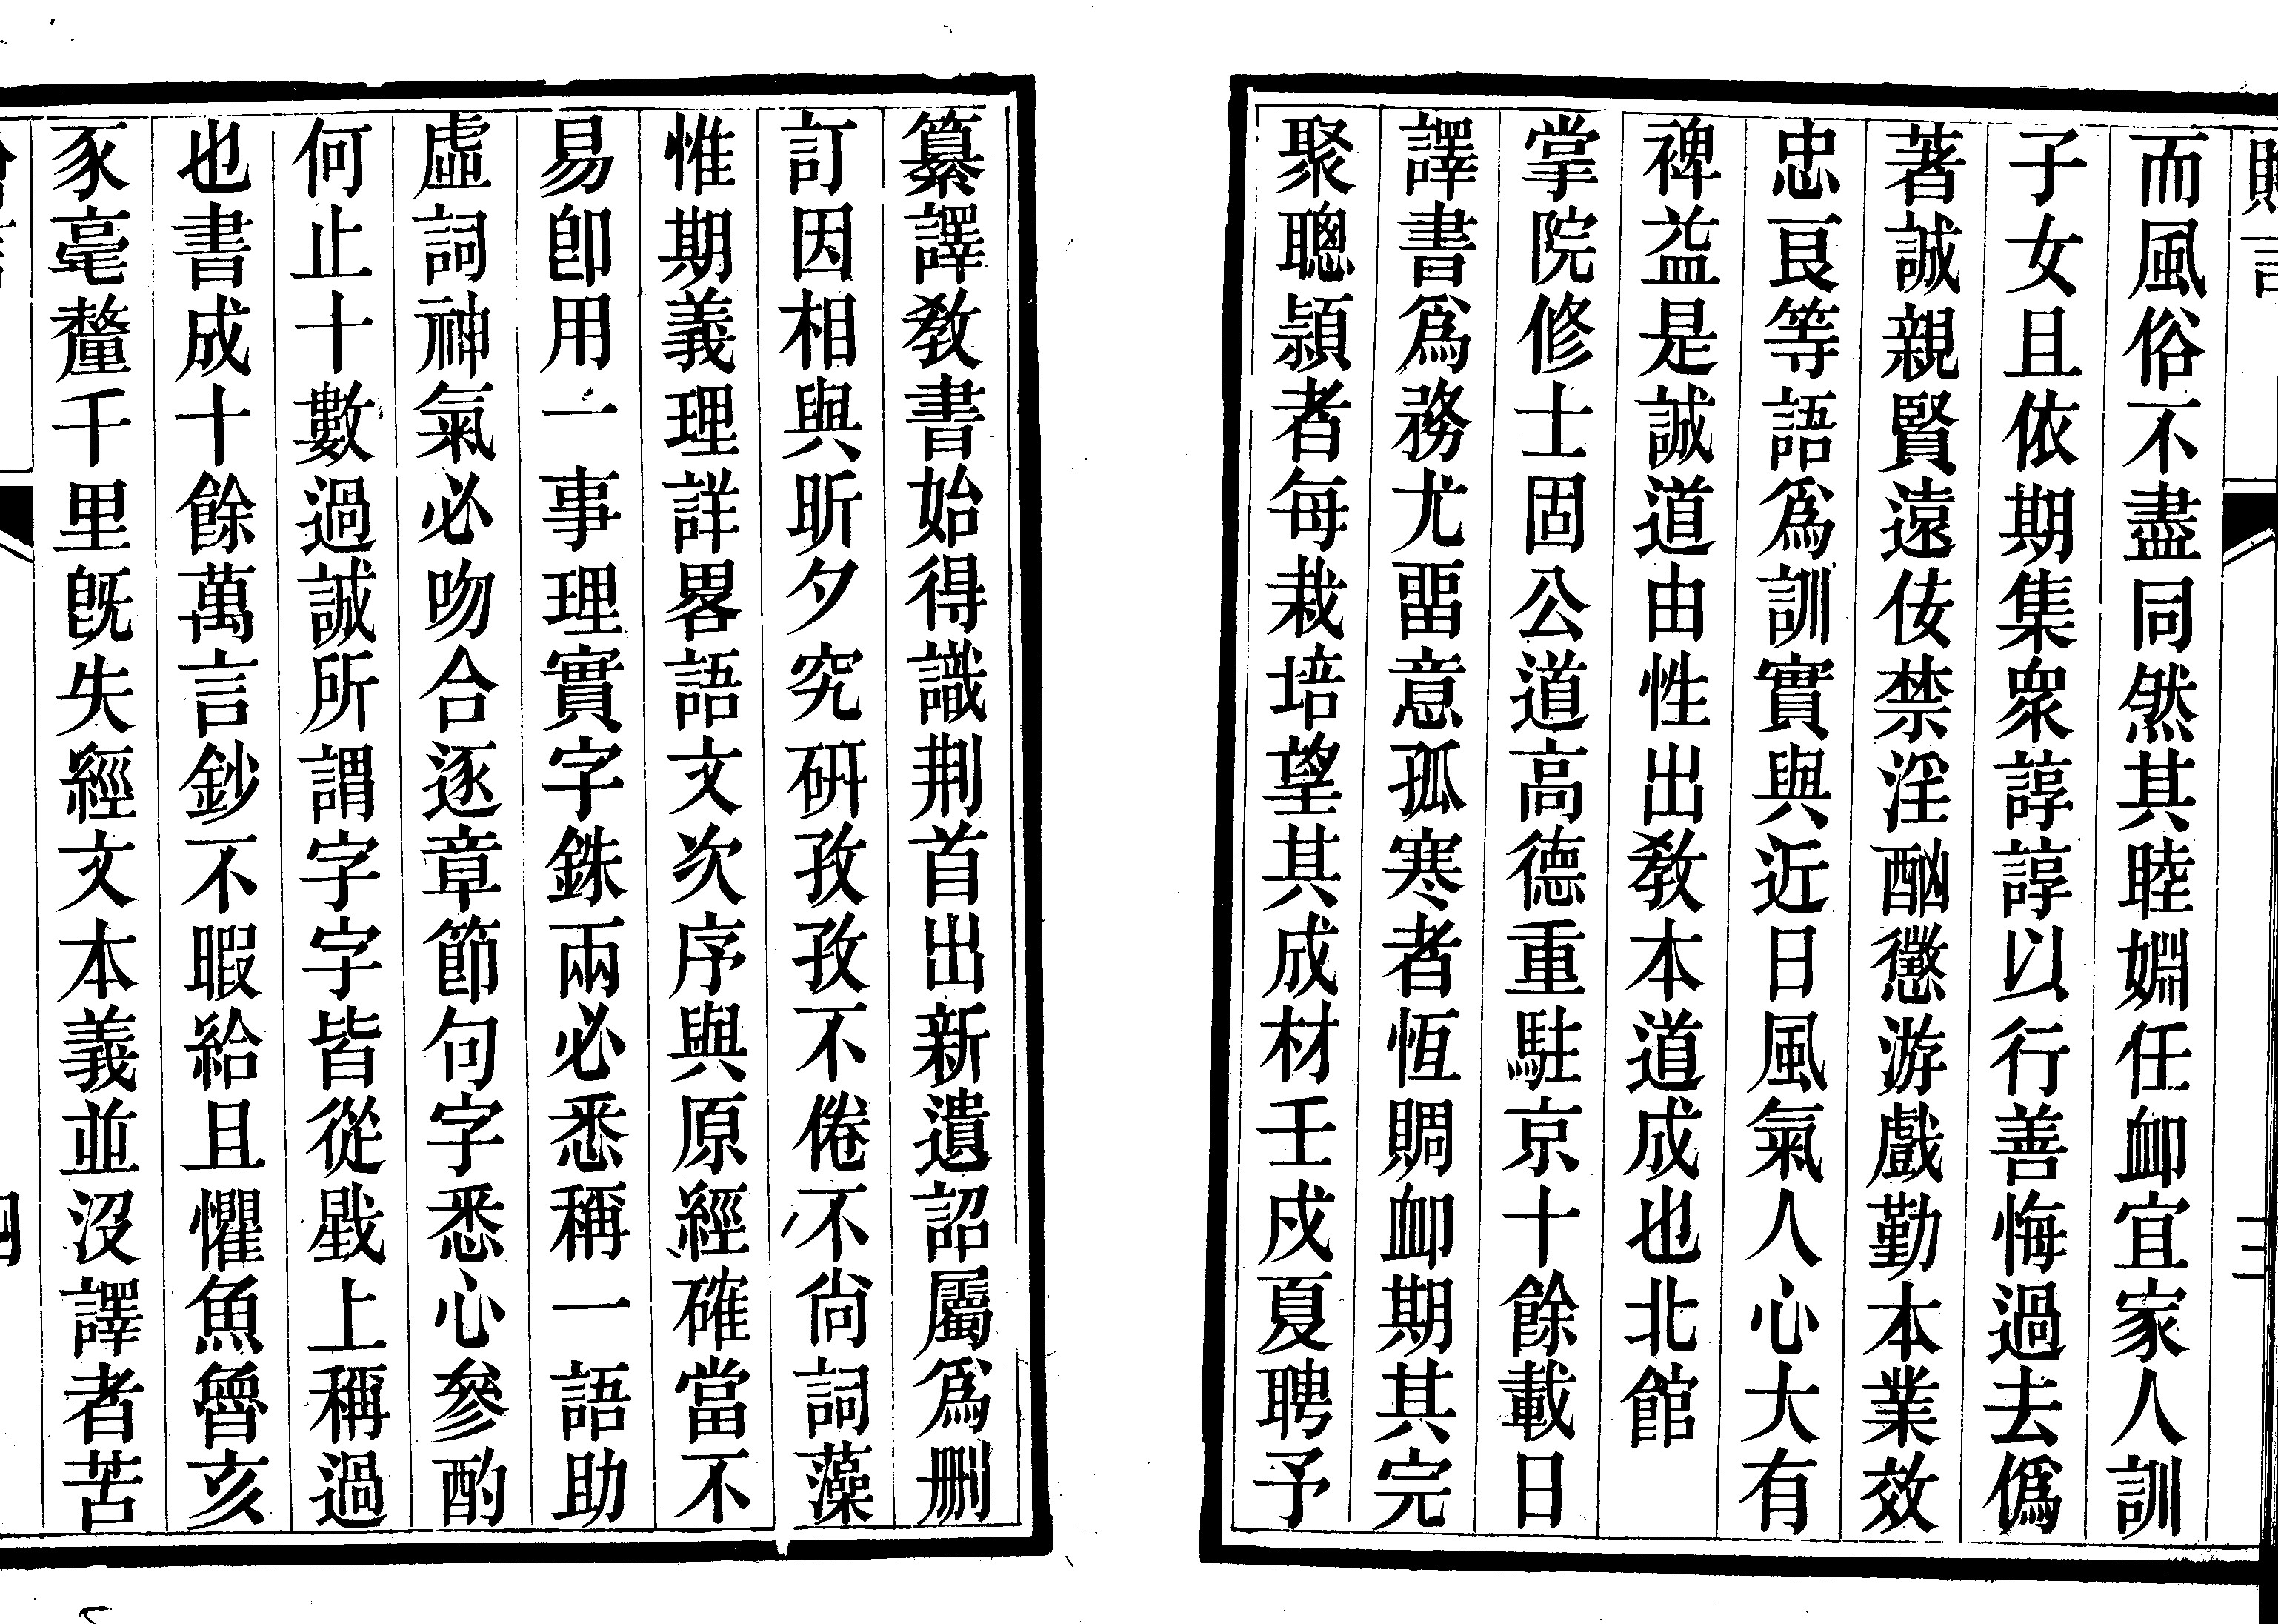 而風俗不盡同然其睦婣任卹宜家人訓
子女且依期集衆諄諄以行善悔過去僞
著誠親賢遠佞禁淫酗懲游戲勤本業效
忠艮等語爲訓實與近日風氣人心大有
裨益是誠道由性出教本道成也北館
掌院修士固公道高德重駐京十餘載日
譯書爲務尤畱意孤寒者恆賙卹期其完
聚聰頴者每栽培望其成材壬戌夏聘予
纂譯教書始得識荆首出新遺詔屬爲刪
訂因相與昕夕究硏孜孜不倦不尙詞藻
惟期義理詳畧語文次序與原經確當不
易卽用一事理實字銖兩必悉稱一語助
虛詞神氣必吻合逐章節句字悉心參酌
何止十數過誠所謂字字皆從戥上稱過
也書成十餘萬言鈔不暇給且懼魚魯亥
豕毫釐千里旣失經文本義並沒譯者苦